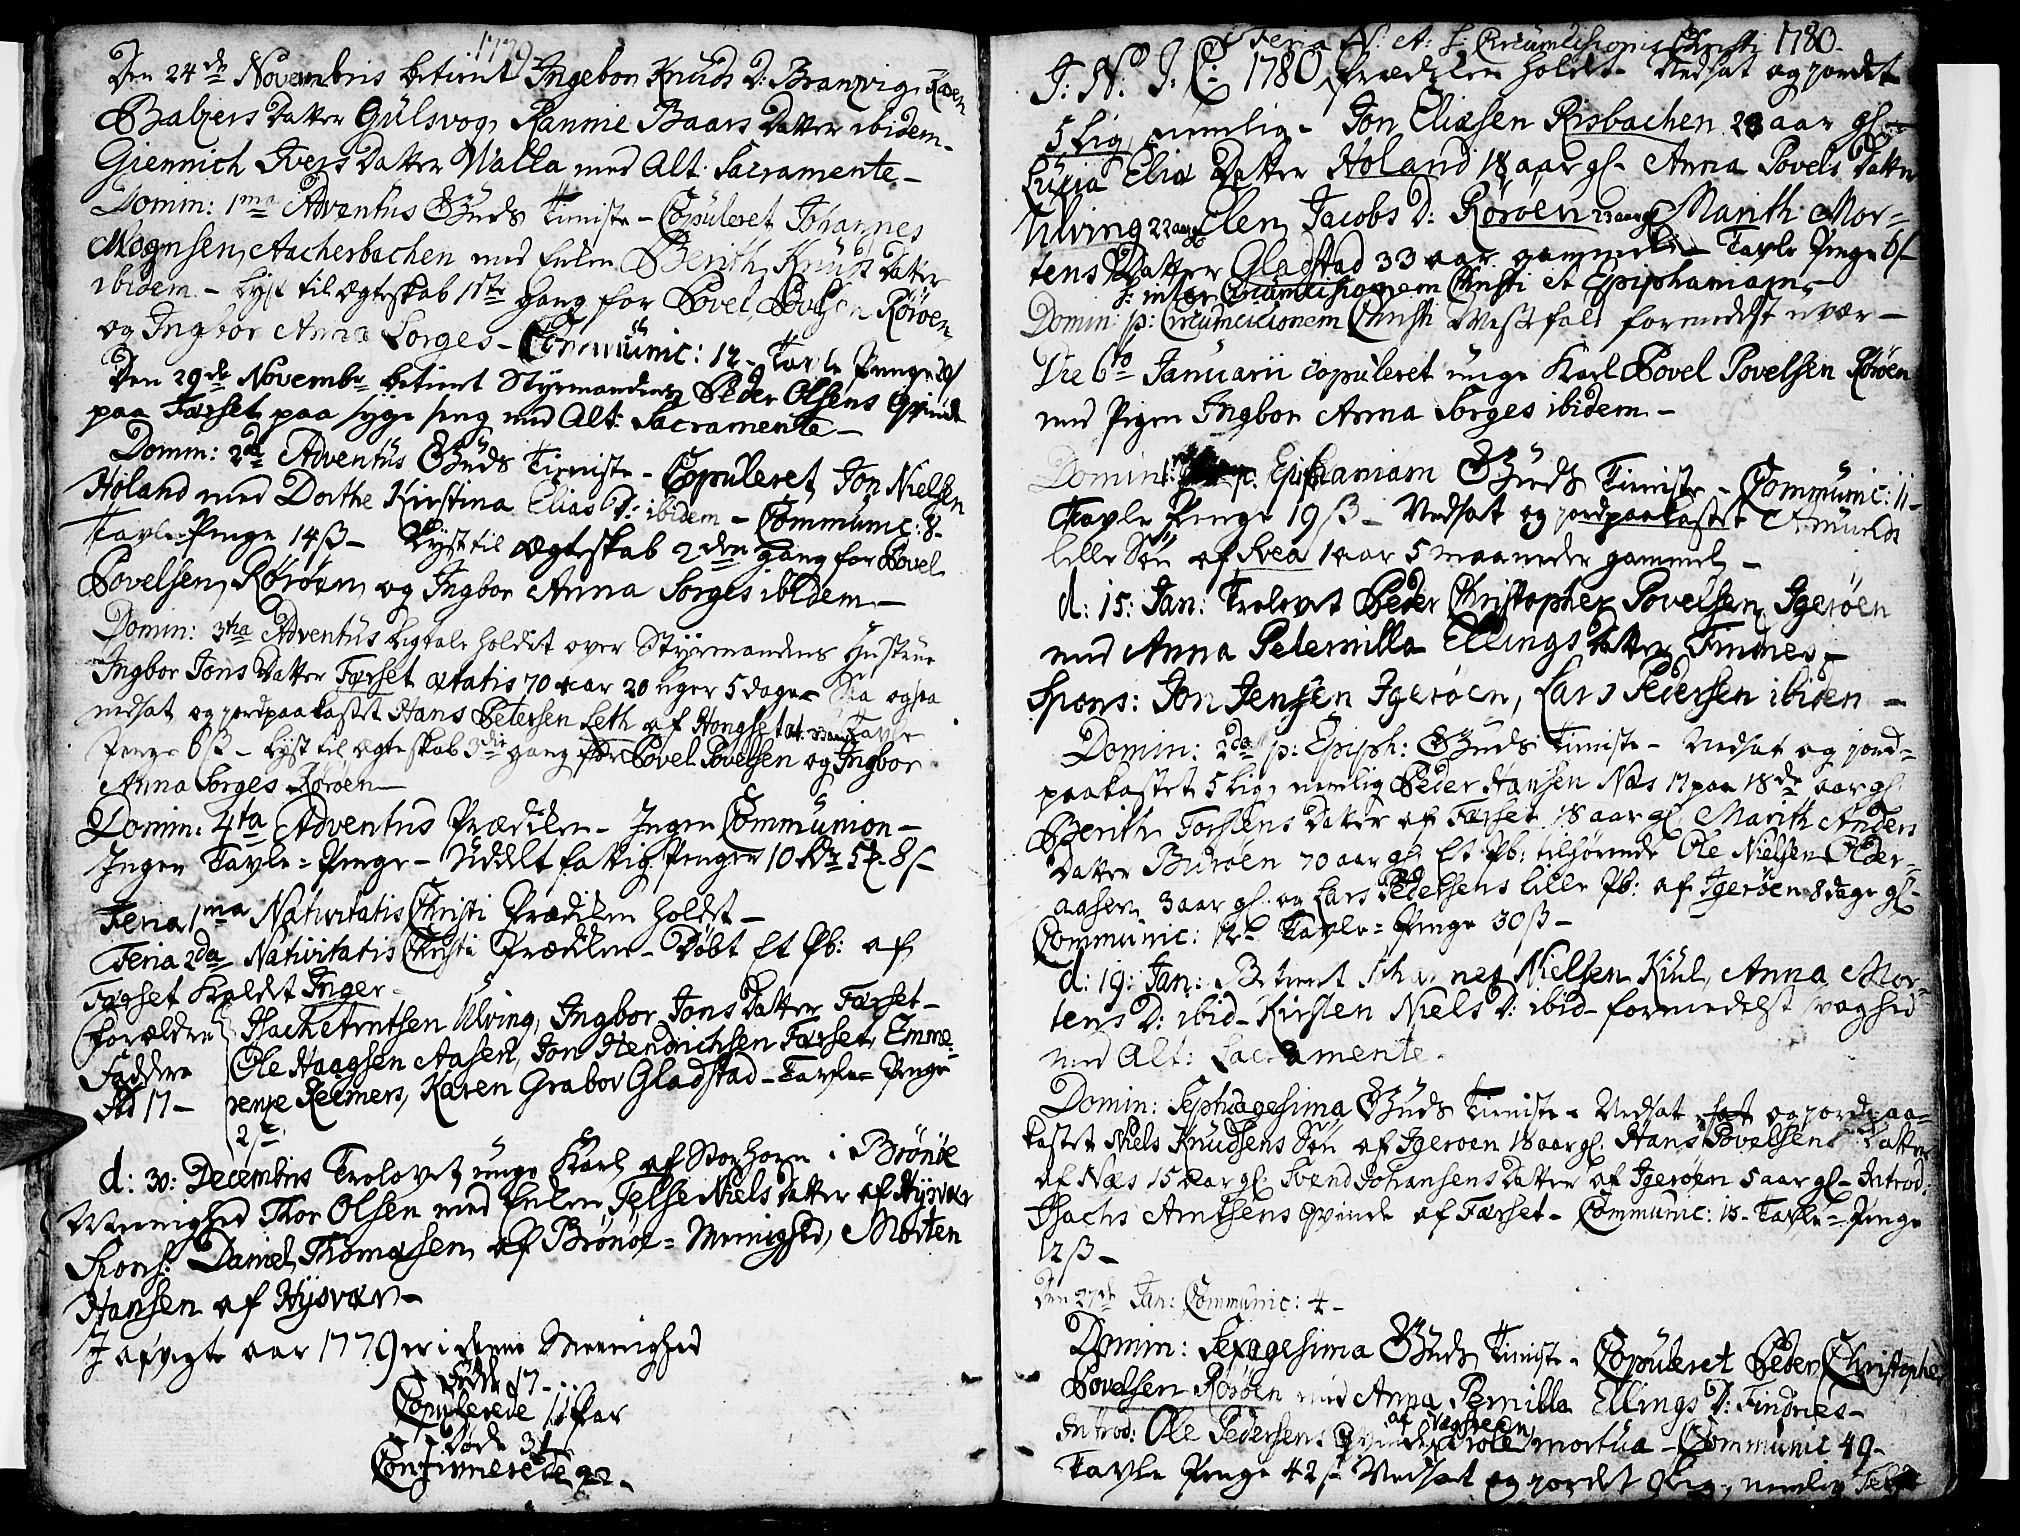 1779
Den 24de Novembris betient Ingebor Knuds D: Branzvig, Karen
Balzers Datter Gülsvog, Rannie Baars Datter ibidem
Giennich Ivers Datter Walla med Alt: Sacramente –
Domin: 1ma Adventüs Güds Tieniste – Copüleret Johannes
Mognsen Aacherbachen med Enken Berith Knüds Datter
ibidem – Lyst til Ægteskab 1ste Gang for Povel Povelsen Röröen
og Ingbor Anna Sorges – Commünic: 12 – Tavle Penge
Den 29de Novembr betient Styrmanden Peder Olsens Qvinde
paa Færset paa syge seng med Alt: Sacramente –
Domin: 2da Adventüs Güds Tieniste – Copüleret Jon Nielsen
Höland med Dorthe Kirstina Elias D: ibidem – Commünic: 8 –
Tavle Penge 14ß – Lyst til Ægteskab 2den Gang for Povel
Povelsen Röröen og Ingbor Anna Sorges ibidem –
Domin: 3tia Adventüs Ligtale holdet over Styrmandens Hustrue
Ingbor Jons Datter Færset ætatis 70 aar 20 uger 5 dage – Saa ogsaa
nedsat og jordpaakastet Hans Petersen Leth af Hongset Tavle
Penge 6ß – Lyst til Ægteskab 3die Gang for Povel Povelsen og Ingbor
Anna Sorges Röröen –
Domin: 4ta Adventüs Prædiken – Ingen Commünion –
Ingen Tavle-Penge – Uddelt fattig Penger 10 Rdr 5 8ß –
Feria 1ma Nativitatis Christi Prædiken holdet –
Feria 2da Nativitatis Christi Prædiken – Döbt Et Pb: af
Færset kaldet Inger –
Forældre Isach Arntsen Ulving, Ingbor Jons Datter Færset –
Faddere Ole Haagsen Aasen, Jon Hendrichsen Færset, Emme-
No 17 – rense Reemers, Karen Grabov Gladstad – Tavle Penge
2ß
d: 30: Decembris Trolovet unge Karl af Storhorn i Brönöe
Meenighed Thor Olsen med Enken Telse Niels Datter af Hysvær
Spons: Daniel Thomæsen af Brönöe-Menighed, Morten
Hansen af Hysvær –
I afvigte aar 1779 er i denne Meenighed
Födde 17 –
Copulerede 11 Par
Döde 34
Confirmerede 22 –
Feria N: A: s: Circumcisionis Christi 1780
I: N: J: C: 1780 Prædiken holdet – Nedsat og jordet
5 Lig, nemlig – Jon Eliæsen Risbachen 28 aar gl –
Lucia Eliæ Datter Höland 18 aar gl – Anna Povels Datter
Ulving 22 aar gl Elen Jacobs D: Röröen 23 aar gl Marith Mor-
tens Datter Gladstad 33 aar gammel – Tavle Penge 6ß
s: inter Circumcisionem Christi et Epiphaniam
Domin: p: Circumcisionem Christi Messefald formedelst uvær –
Die 6to Januarii copüleret unge Karl Povel Povelsen Röröen
med Pigen Ingbor Anna Sorges ibidem –
Domin: 1ma p: Epiphaniam Güds Tieniste – Commünic: 11 –
Tavle Penge 19ß – Nedsat og jordpaakastet Amünds
lille Sön af Svea 1 aar 5 maaneder gammel –
d: 15: Jan: Trolovet Peder Christopher Povelsen Igeröen
med Anna Peternilla Ellings Datter Findnes –
Spons: Jon Jensen Igeröen, Lars Pedersen ibidem –
Domin: 2da p: Epiph: Güds Tieniste – Nedsat og jord-
paakastet 5 Lig, nemlig Peder Hansen Næs 17 paa 18de aar gl
Berith Torstens Datter af Færset 18 aar gl Marith Anders
Datter Buröen 70 aar gl Et Pb: tilhörende Ole Nielsen Older-
aasen 3 aar gl og Lars Pedersens lille Pb: af Igeröen 8 dage gl –
Commünic: 12 – Tavle-Penge 30ß –
d: 19: Jan: Betient Johannes Nielsen Kiül, Anna Mor-
tens D: ibid – Kirsten Niels D: ibid – formedelst svaghed
med Alt: Sacramente –
Domin: Septüagesima Güds Tieniste – Nedsat og jordpaa-
kastet Niels Knudsens Sön af Igeröen 18 aar gl. Hans Povelsens Datter
af Næs 15 aar gl. Svend Johansens Datter af Igeröen 5 aar gl – Introd:
Isachs Arntsens Qvinde af Færset – Commünic: 18 – Tavle-Penge
12ß –
Den 27de Jan: Commünic: 4 –
Domin: Sexagesima Güds Tieniste – Copüleret Peder Christopher
Povelsen Röröen med Anna Pernilla Ellings D: Findnes –
Introd: Ole Pedersens Qvinde af Vaagsteen prole mortua – Commünic 49 –
Tavle Penge 42ß Nedsat og jordet Lig, nemlig